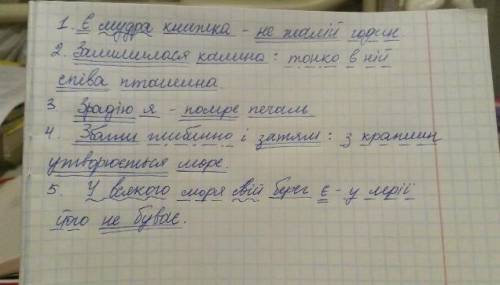 1. Є мудра книжка - не жалій годин
2. Залишилася калина: тонко в ній
співа пташина
3. Зрадію я - помре печаль
4. Збагни глибинно і затям: з краплин
утворюється море.
5. У всякого моря свій берег є - у мрії
його не буває.